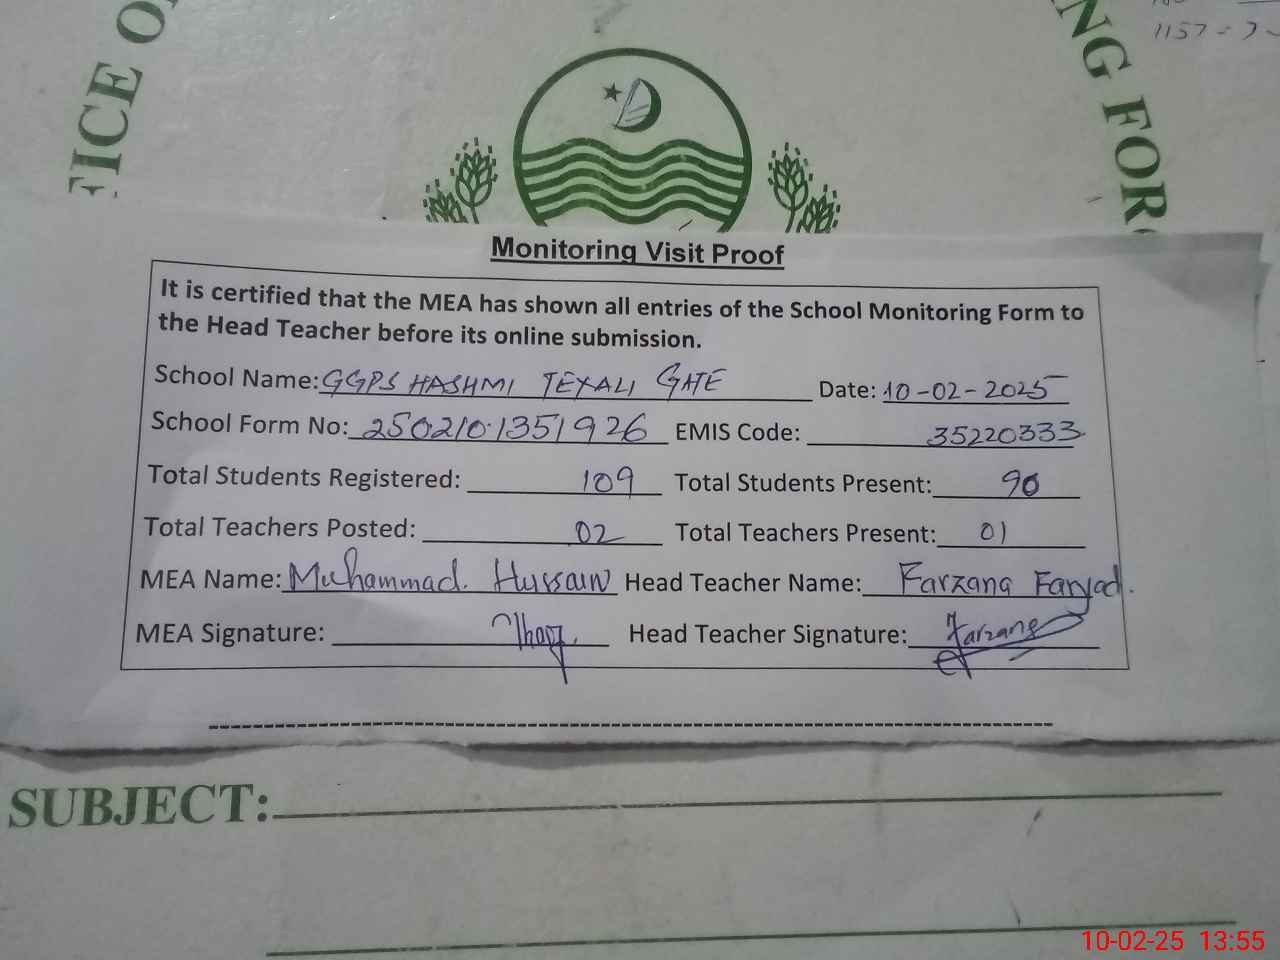 FICE O
NG FOR
1157
Monitoring Visit Proof
It is certified that the MEA has shown all entries of the School Monitoring Form to
the Head Teacher before its online submission.
School Name: GGPS HASHMI TEXALI GATE Date: 10-02-2025
School Form No: 250210.1351926 EMIS Code: 35220333
Total Students Registered: 109 Total Students Present: 90
Total Teachers Posted: 02 Total Teachers Present: 01
MEA Name: Muhammad. Hussain Head Teacher Name: Farzana Faryad.
MEA Signature: Head Teacher Signature: Farzana
SUBJECT:
10-02-25 13:55